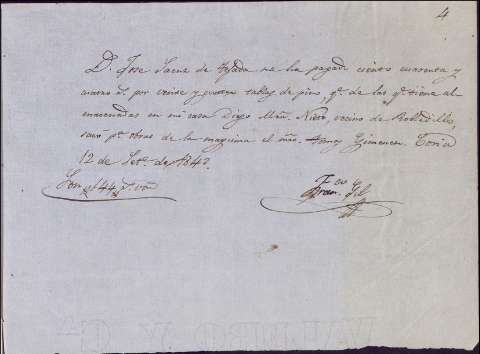 4
D. Jose Saenz de Tejada me ha pagado ciento cuarenta y
cuatro r. por veinte y cuatro tablas de pino, q. de las q. tiene al
macenadas en mi casa Diego Man. Nieto, vecino de Robledillo,
sacó p. obras de la maquina el año. Ximenez. Coria
12 de Set. de 184
Son 144 r. von
Fran. Gil